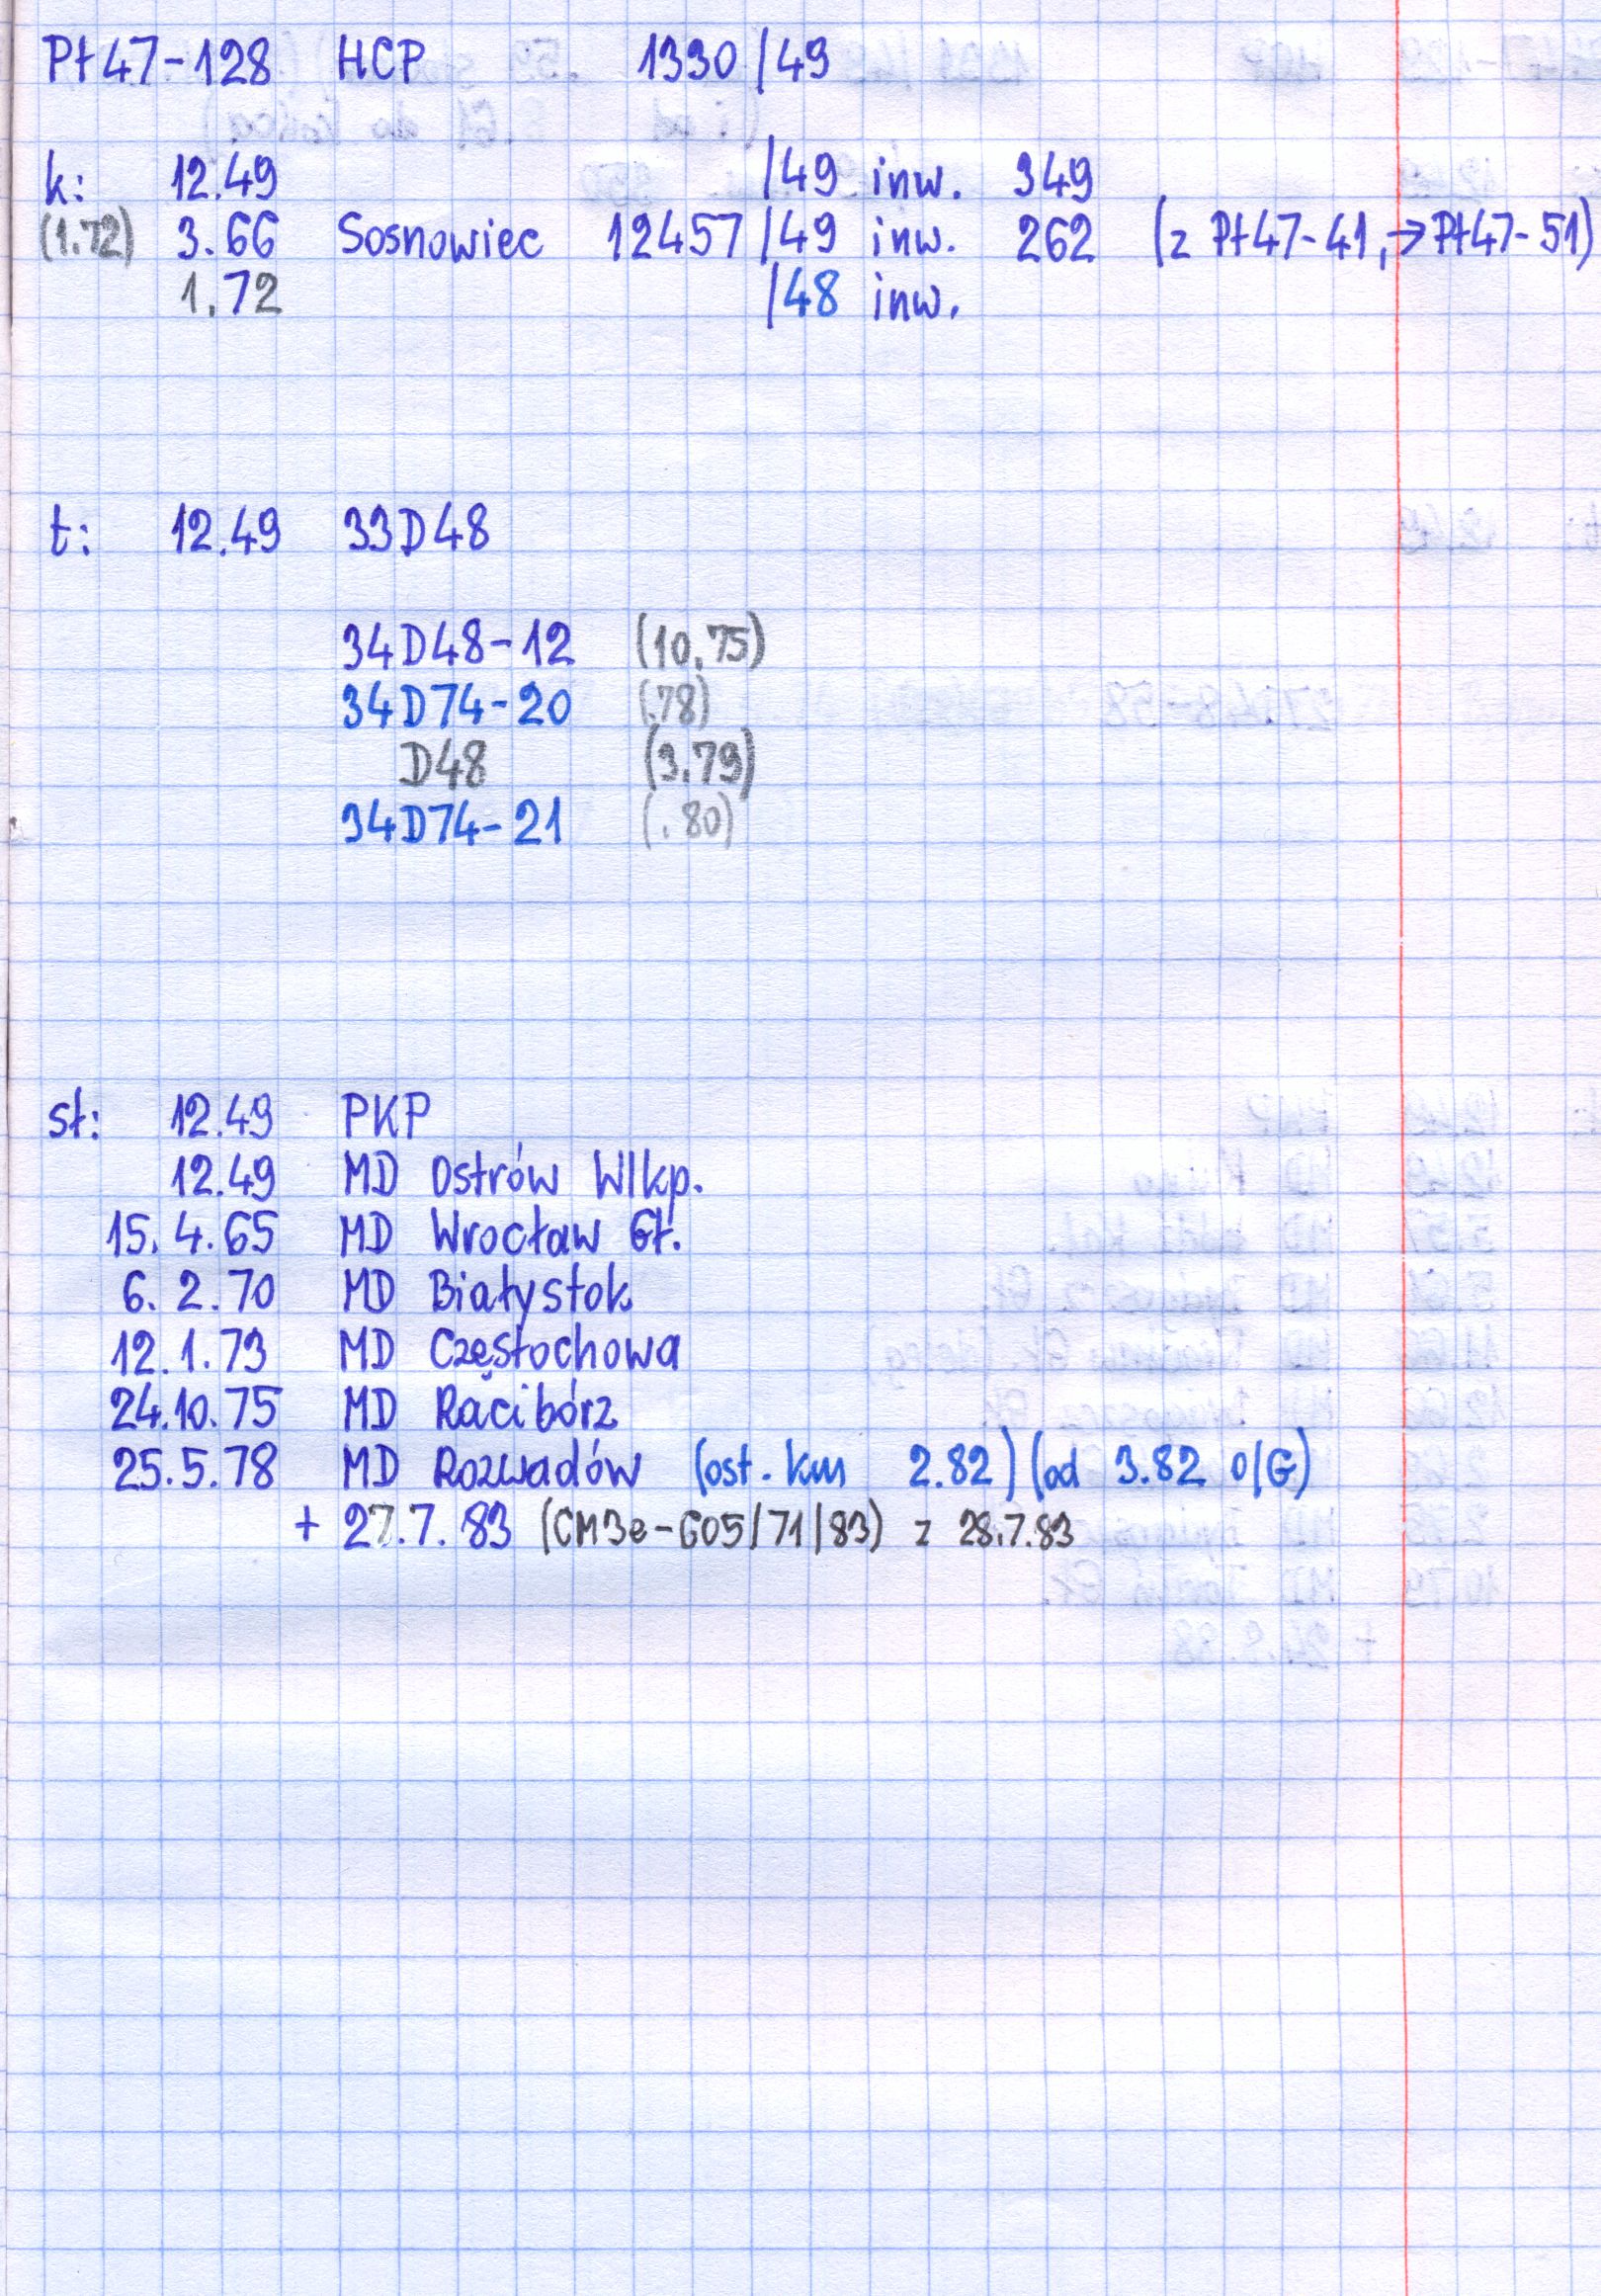 Pt47-128 HCP 1330/49
k: 12.49 /49 inw. 349
(1.72) 3.66 Sosnowiec 12457/49 inw. 262 (z Pt47-41,→Pt47-51)
1.72 /48 inw.
t: 12.49 33D48
34D48-12 (10.75)
34D74-20 (.78)
D48 (3.79)
34D74-21 (.80)
st: 12.49 PKP
12.49 MD Ostrów Wlkp.
15.4.65 MD Wrocław Gł.
6.2.70 MD Białystok
12.1.73 MD Częstochowa
24.10.75 MD Racibórz
25.5.78 MD Rozwadów (ost. km 2.82) (od 3.82 O/G)
+ 27.7.83 (CM3e-605/71/83) z 28.7.83